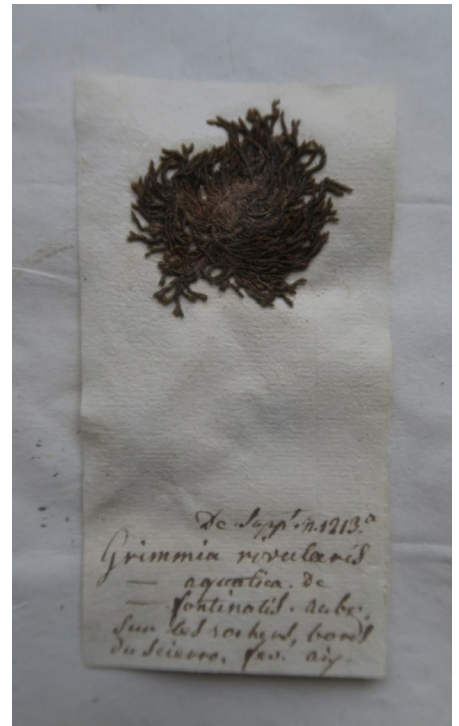 De Supp.t n. 1213.a
Grimmia rivularis
— aquatica. De
— fontinalis. aube.
sur les rochers, bords
du scierro.